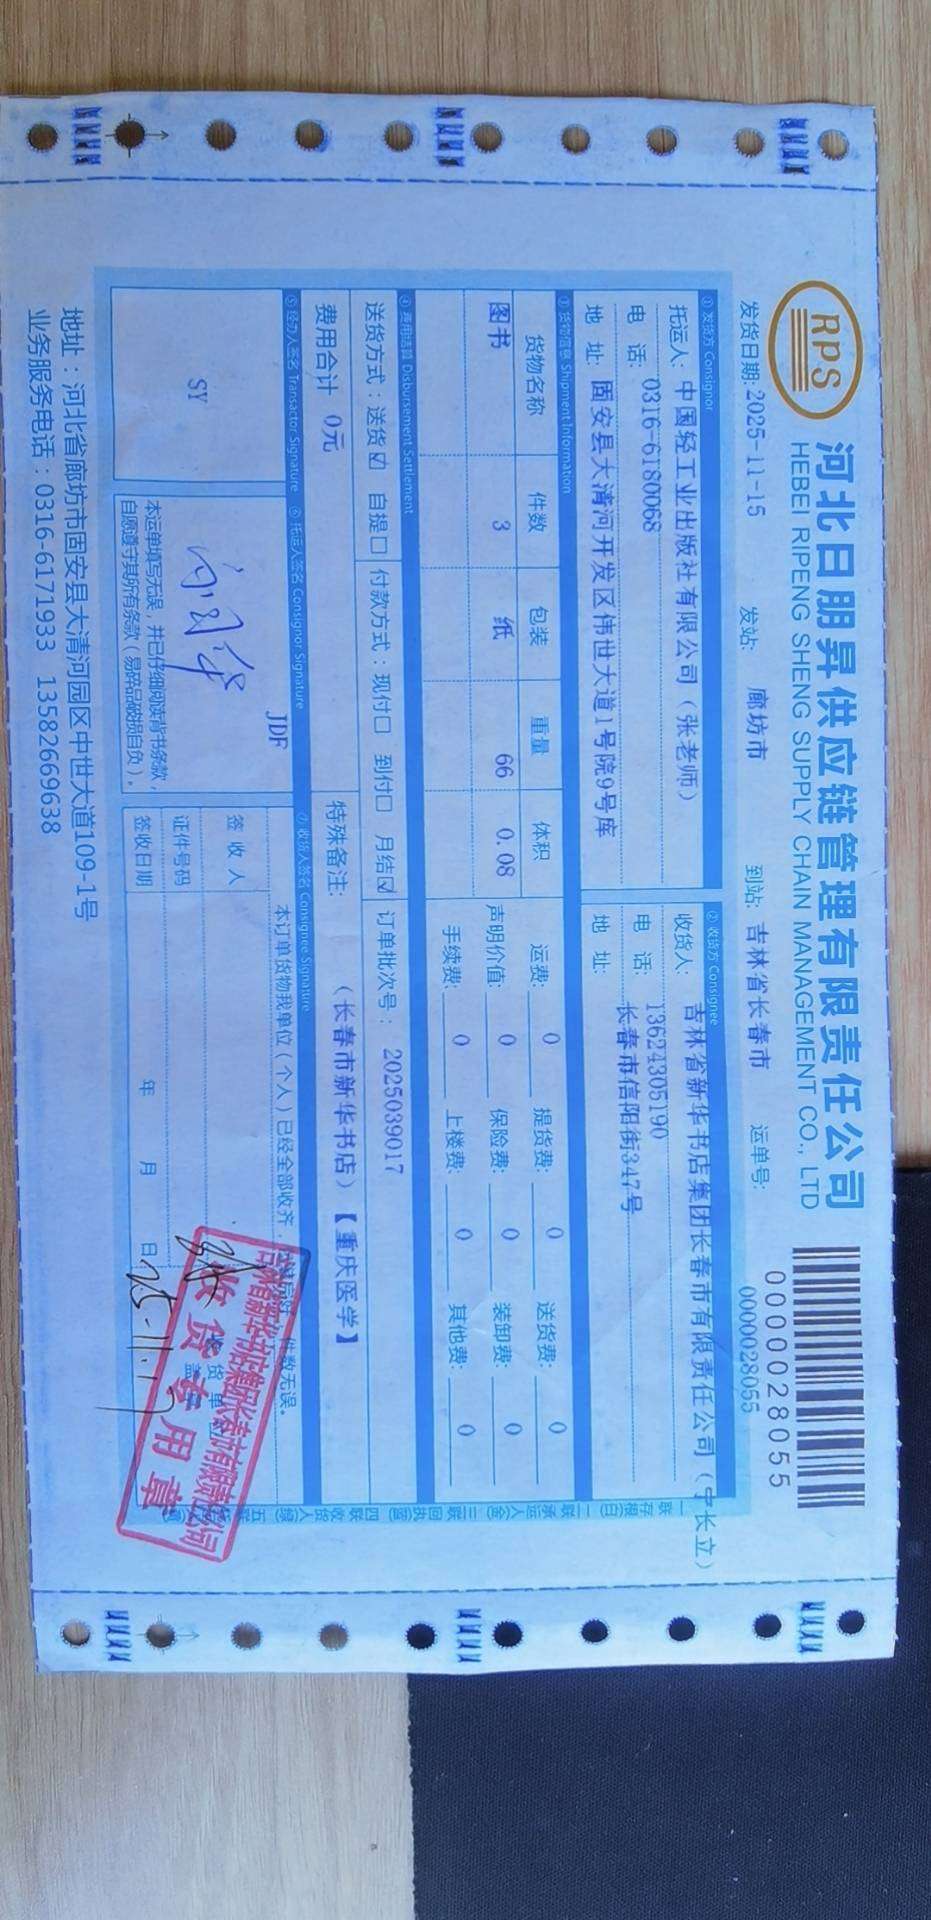 RPS
河北日朋昇供应链管理有限责任公司
HEBEI RIPENG SHENG SUPPLY CHAIN MANAGEMENT CO., LTD
0000028055
发货日期: 2025-11-15 发站: 廊坊市 到站: 吉林省长春市 运单号: 0000028055
① 发货方 Consignor ② 收货方 Consignee
托运人: 中国轻工业出版社有限公司（张老师） 收货人: 吉林省新华书店集团长春市有限责任公司（宁长立）
电 话: 0316-6180068 电 话: 13624305190
地 址: 固安县大清河开发区伟世大道1号院9号库 地 址: 长春市信阳街347号
③ 货物信息 Shipment Information
货物名称 件数 包装 重量 体积 运费: 0 提货费: 0 送货费: 0
图书 3 纸 66 0.08 声明价值: 0 保险费: 0 装卸费: 0
手续费: 0 上楼费: 0 其他费: 0
④ 费用结算 Disbursement Settlement
送货方式：送货☑ 自提□ 付款方式：现付□ 到付□ 月结☑ 订单批次号： 2025039017
费用合计 0元 特殊备注: （长春市新华书店）【重庆医学】
⑤ 经办人签名 Transactor Signature ⑥ 托运人签名 Consignor Signature ⑦ 收货人签名 Consignee Signature
SY
JDF
本运单填写无误，并已仔细阅读背书条款，
自愿遵守其所有条款（易碎品破损自负）。
本订单货物我单位（个人）已经全部收齐， 件数无误。
签 收 人
证件号码
签收日期 年 月 日
25-11-17
吉林省新华书店集团长春市有限责任公司
收货专用章
地址：河北省廊坊市固安县大清河园区中世大道109-1号
业务服务电话：0316-6171933 13582669638